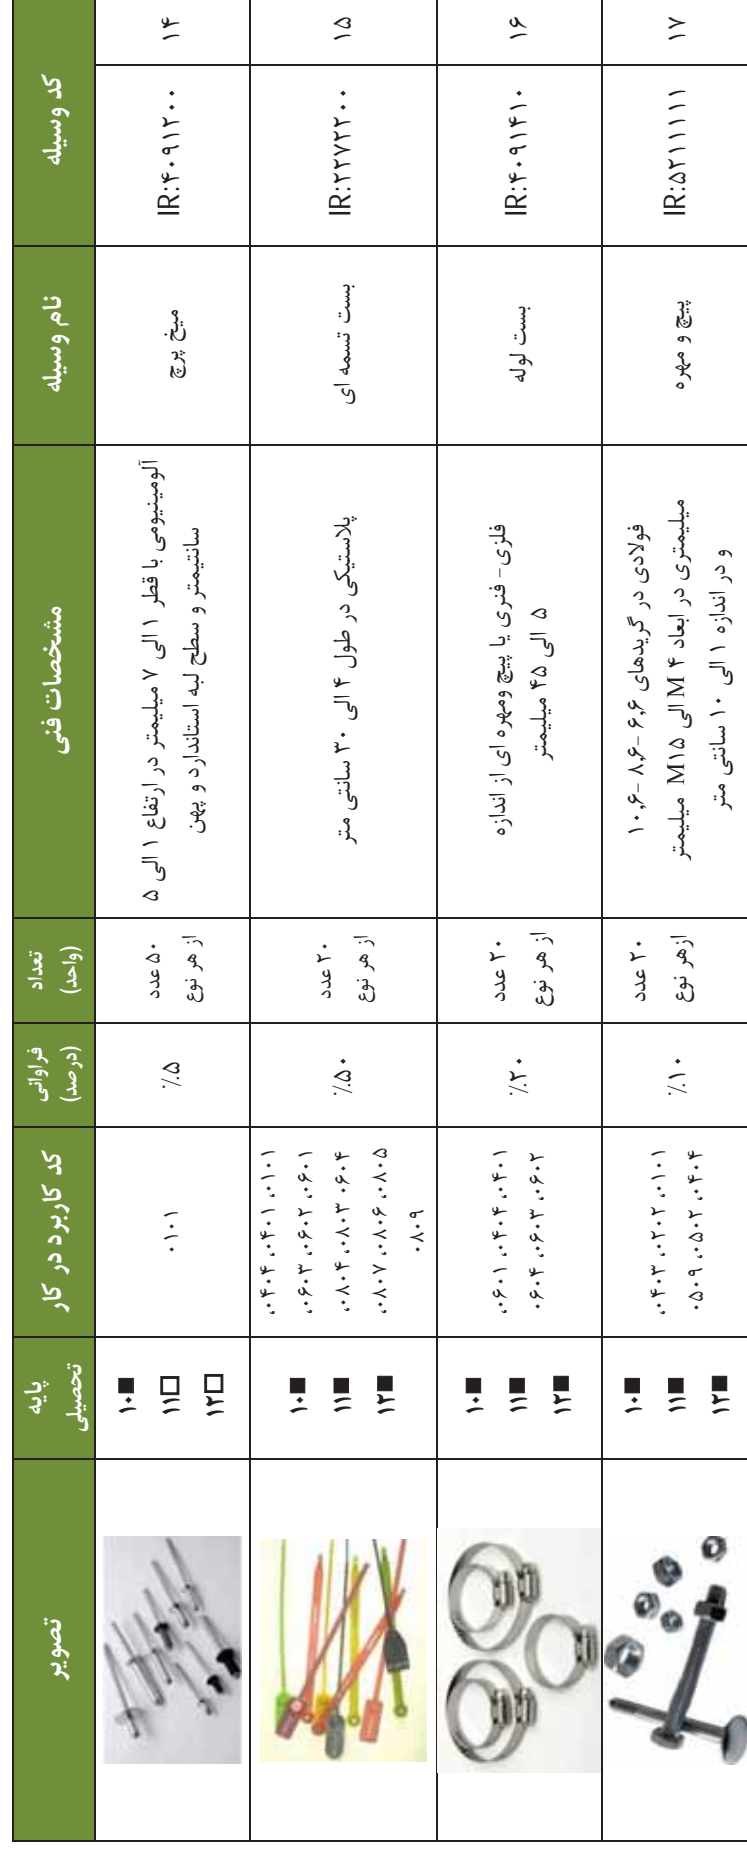 کد وسیله
نام وسیله
مشخصات فنی
تعداد
(واحد)
فراوانی
(درصد)
کد کاربرد در کار
پایه
تحصیلی
تصویر
۱۴
IR:۴۰۹۱۲۰۰
میخ پرچ
آلومینیومی با قطر ۱ الی ۷ میلیمتر در ارتفاع ۱ الی ۵
سانتیمتر و سطح لبه استاندارد و پهن
۵۰ عدد
از هر نوع
٪۵
۰۱۰۱
۱۰■
۱۱□
۱۲□
۱۵
IR:۲۲۷۲۲۰۰
بست تسمه ای
پلاستیکی در طول ۴ الی ۳۰ سانتی متر
۲۰ عدد
از هر نوع
٪۵۰
۰۱۰۱، ۰۴۰۱، ۰۴۰۴،
۰۶۰۱، ۰۶۰۲، ۰۶۰۳،
۰۶۰۴، ۰۸۰۳، ۰۸۰۴،
۰۸۰۵، ۰۸۰۶، ۰۸۰۷،
۰۸۰۹
۱۰■
۱۱■
۱۲■
۱۶
IR:۴۰۹۱۴۱۰
بست لوله
فلزی- فنری یا پیچ ومهره ای از اندازه
۵ الی ۴۵ میلیمتر
۲۰ عدد
از هر نوع
٪۲۰
۰۴۰۱، ۰۴۰۴، ۰۶۰۱،
۰۶۰۲، ۰۶۰۳، ۰۶۰۴
۱۰■
۱۱■
۱۲■
۱۷
IR:۵۲۱۱۱۱۱
پیچ و مهره
فولادی در گریدهای ۶,۶ -۸,۶ -۱۰,۶
میلیمتری در ابعاد M ۴ الی M۱۵ میلیمتر
و در اندازه ۱ الی ۱۰ سانتی متر
۲۰ عدد
ازهر نوع
٪۱۰
۰۱۰۱، ۰۲۰۲، ۰۴۰۳،
۰۴۰۴، ۰۵۰۲، ۰۵۰۹
۱۰■
۱۱■
۱۲■